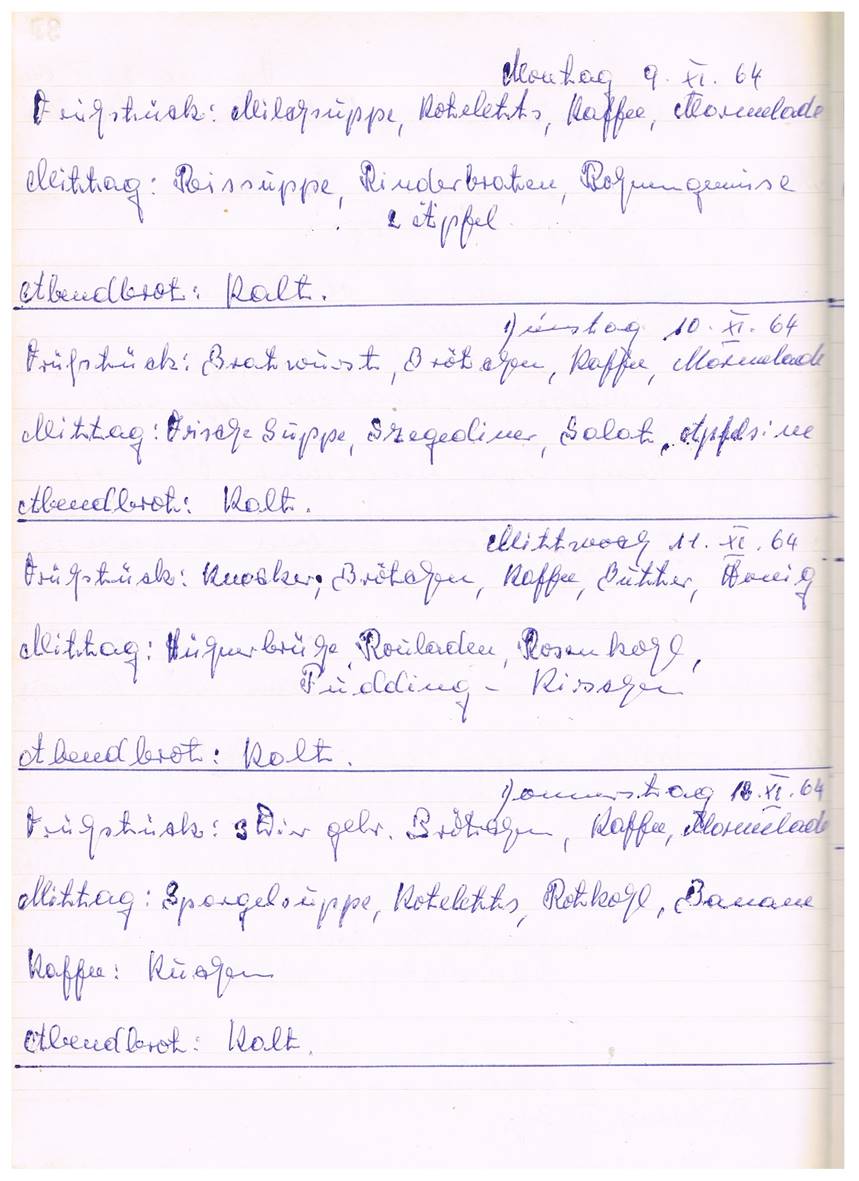 Montag 9. XI. 64
Frühstück: Milchsuppe, Koteletts, Kaffee, Marmelade
Mittag: Reissuppe, Rinderbraten, Rahmgemüse
2 Äpfel
Abendbrot: Kalt.
Dienstag 10. XI. 64
Frühstück: Bratwurst, Brötchen, Kaffee, Marmelade
Mittag: Frische Suppe, Szegediner, Salat, Apfelsine
Abendbrot: Kalt.
Mittwoch 11. XI. 64
Frühstück: Knacker, Brötchen, Kaffee, Butter, Honig
Mittag: Hühnerbrühe, Rouladen, Rosenkohl,
Pudding - Kirschen
Abendbrot: Kalt.
Donnerstag 12. XI. 64
Frühstück: 3 Eier gebr. Brötchen, Kaffee, Marmelade
Mittag: Spargelsuppe, Koteletts, Rotkohl, Banane
Kaffee: Kuchen
Abendbrot: Kalt.